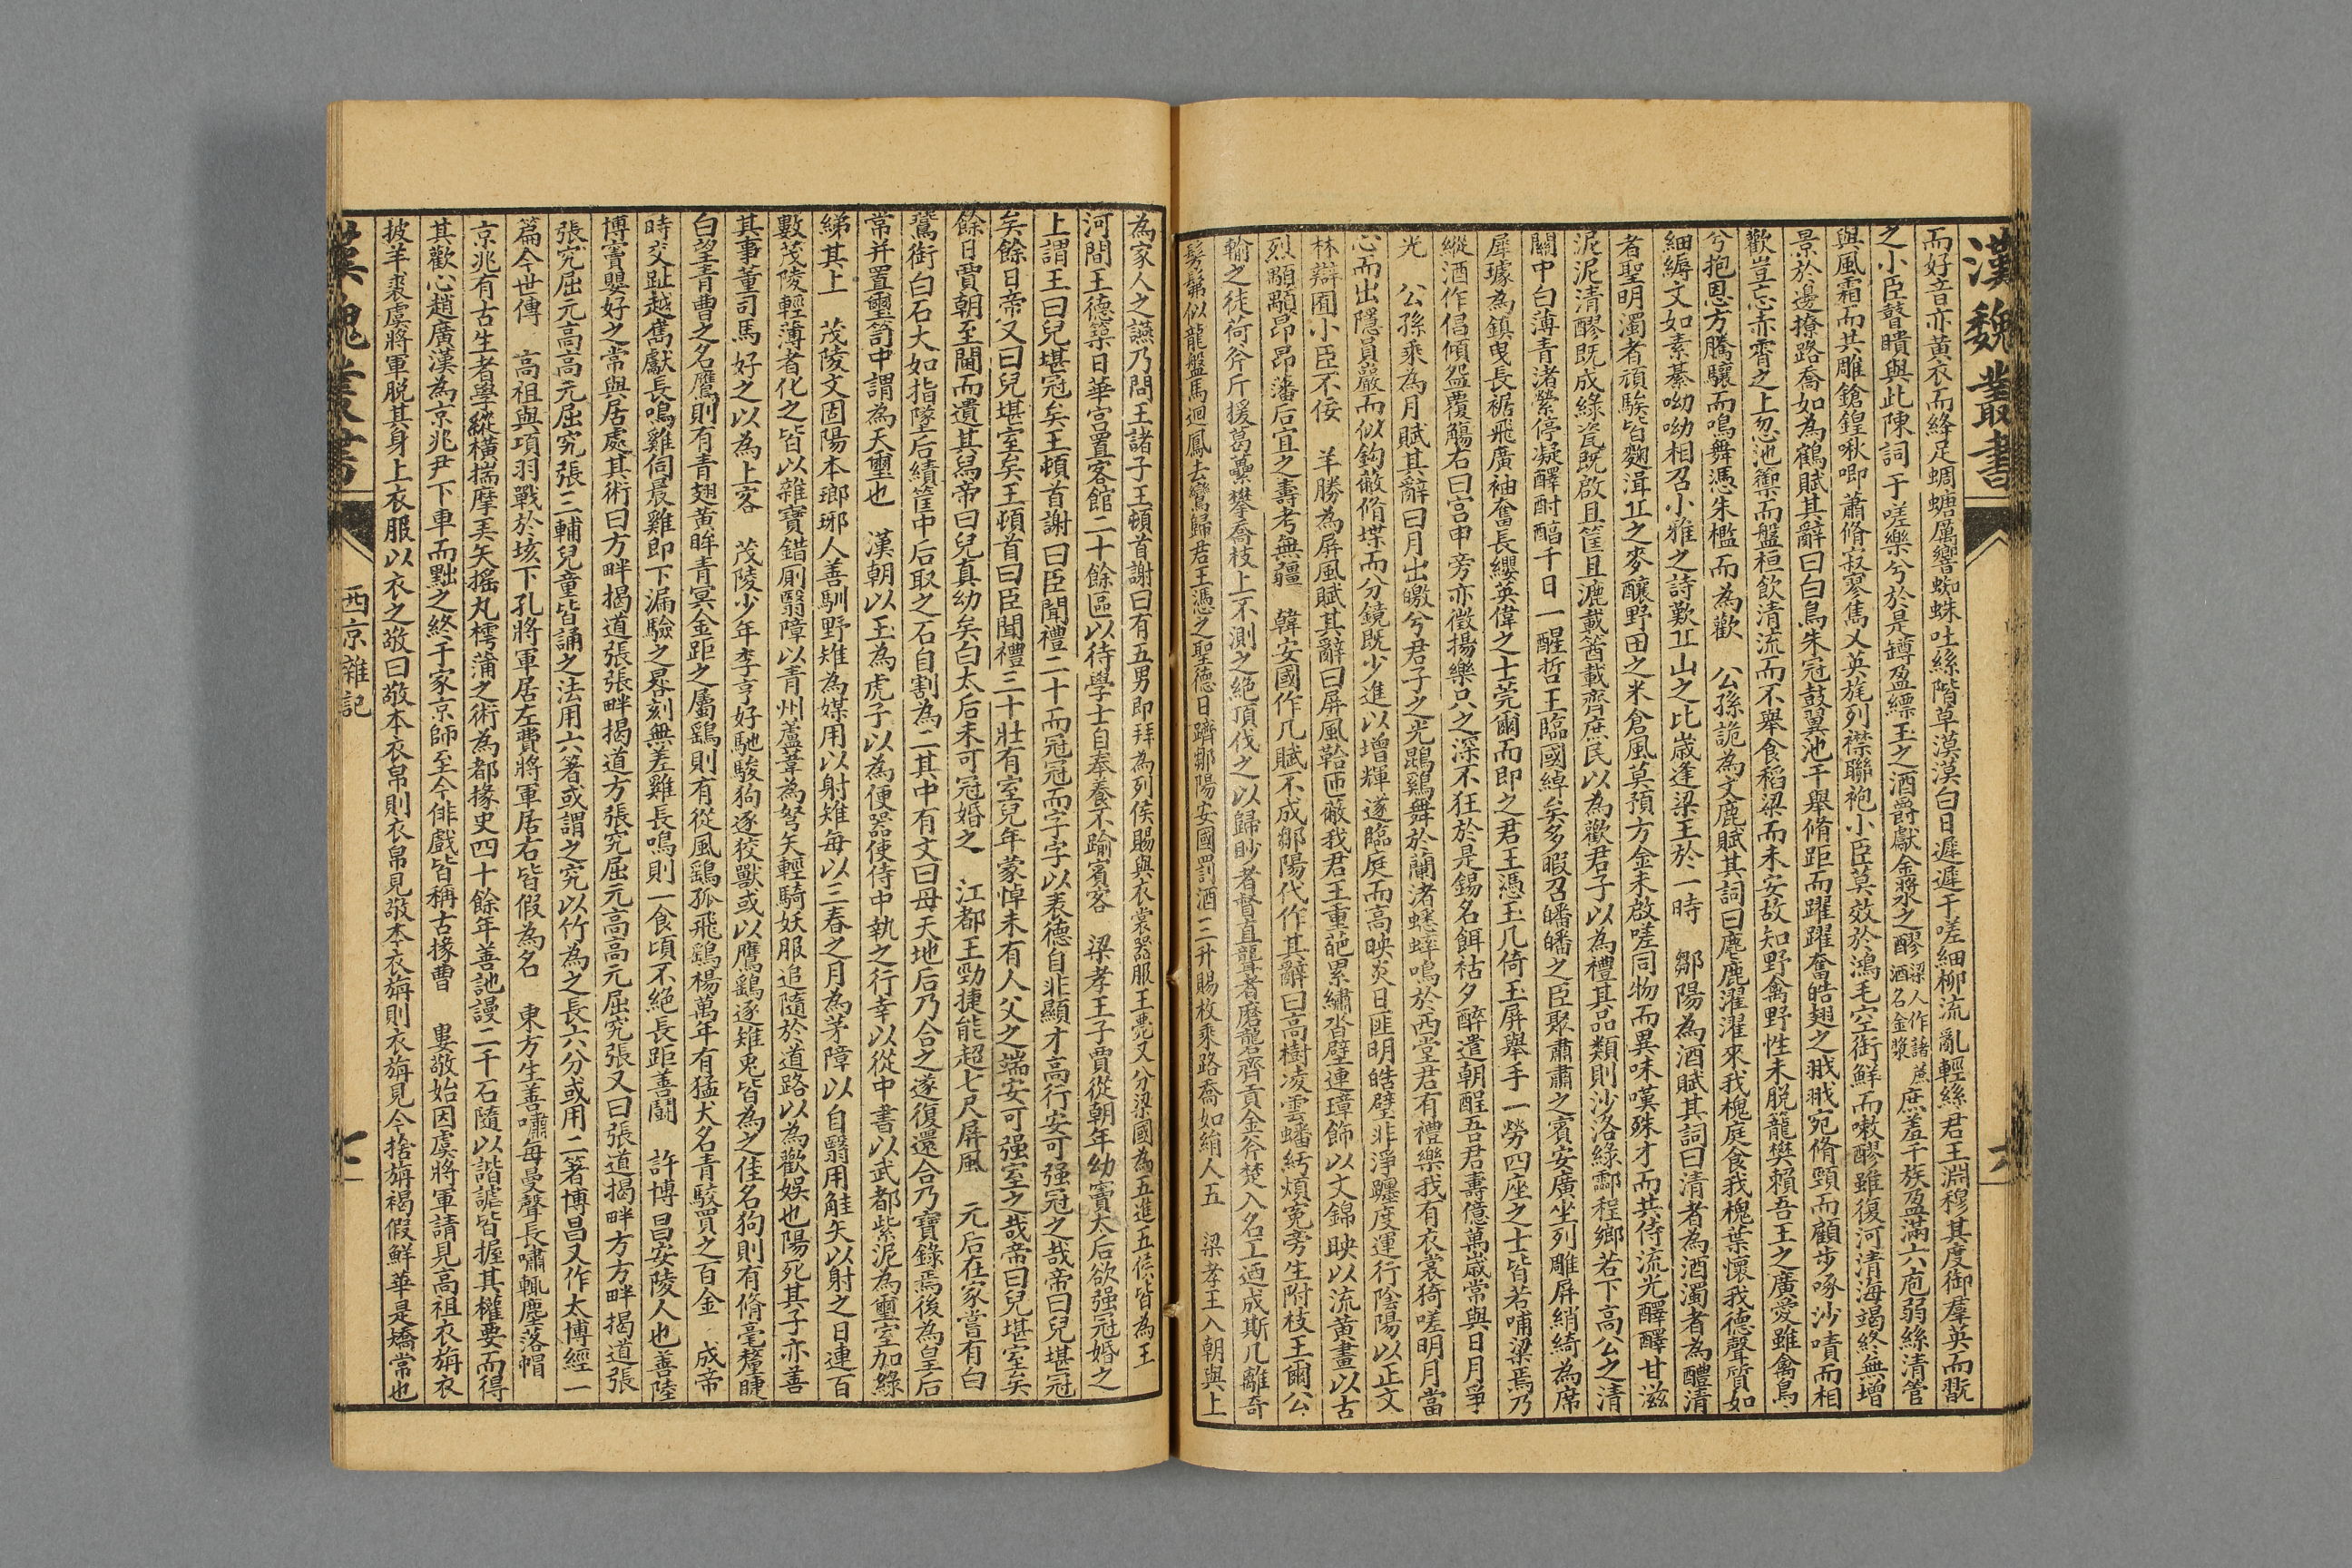 漢魏叢書
而好音亦黃衣而絳足蜩螗厲響蜘蛛吐絲階草漠漠白日遲遲于嗟細柳流亂輕絲君王淵穆其度御羣英而翫
之小臣瞽聵與此陳詞于嗟樂兮於是罇盈縹玉之酒爵獻金漿之醪梁人作藷蔗酒名金漿庶羞千族盈滿六庖弱絲清管
與風霜而共雕鎗鍠啾唧蕭脩寂寥雋乂英旄列襟聯袍小臣莫效於鴻毛空銜鮮而嗽醪雖復河清海竭終無增
景於邊撩路喬如為鶴賦其辭曰白鳥朱冠鼓翼池干舉脩距而躍躍奮皓翅之𦐂𦐂宛脩頸而顧步啄沙磧而相
歡豈忘赤霄之上忽池籞而盤桓飲清流而不舉食稻梁而未安故知野禽野性未脫籠樊賴吾王之廣愛雖禽鳥
兮抱恩方騰驤而鳴舞憑朱檻而為歡　公孫詭為文鹿賦其詞曰麀鹿濯濯來我槐庭食我槐葉懷我德聲質如
細縟文如素綦呦呦相召小雅之詩歎丘山之比歲逢梁王於一時　鄒陽為酒賦其詞曰清者為酒濁者為醴清
者聖明濁者頑騃皆麴湒丘之麥釀野田之米倉風莫預方金未啟嗟同物而異味嘆殊才而共侍流光醳醳甘滋
泥泥清醪既成綠瓷既啟且筐且漉載䔢載齊庶民以為歡君子以為禮其品類則沙洛綠酃程鄉若下高公之清
關中白薄青渚縈停凝醳酎醹千日一醒哲王臨國綽矣多暇召皤皤之臣聚肅肅之賓安廣坐列雕屏綃綺為席
犀璩為鎮曳長裾飛廣袖奮長纓英偉之士莞爾而即之君王憑玉几倚玉屏舉手一勞四座之士皆若哺梁焉乃
縱酒作倡傾盌覆觴右曰宮申旁亦徵揚樂只之深不狂於是錫名餌祛夕醉遣朝酲吾君壽億萬歲常與日月爭
光　公孫乘為月賦其辭曰月出皦兮君子之光鵾雞舞於蘭渚蟋蟀鳴於西堂君有禮樂我有衣裳猗嗟明月當
心而出隱員巖而似鈎蔽脩堞而分鏡既少進以增輝遂臨庭而高映炎日匪明皓璧非淨躔度運行陰陽以正文
林辯囿小臣不佞　羊勝為屏風賦其辭曰屏風鞈匝蔽我君王重葩累繡沓璧連璋飾以文錦映以流黃畫以古
烈顒顒昂昂藩后宜之壽考無疆　韓安國作几賦不成鄒陽代作其辭曰高樹凌雲蟠紆煩冤旁生附枝王爾公
輸之徒荷斧斤援葛虆攀喬枝上不測之絕頂伐之以歸眇者督直聾者磨礱齊貢金斧楚入名工迺成斯几離奇
髣髴似龍盤馬迴鳳去鸞歸君王憑之聖德日躋鄒陽安國罰酒三升賜枚乘路喬如絹人五　梁孝王入朝與上
為家人之讌乃問王諸子王頓首謝曰有五男即拜為列侯賜與衣裳器服王薨又分梁國為五進五侯皆為王
河間王德築日華宮置客館二十餘區以待學士自奉養不踰賓客　梁孝王子賈從朝年幼竇太后欲强冠婚之
上謂王曰兒堪冠矣王頓首謝曰臣聞禮二十而冠冠而字字以表德自非顯才高行安可强冠之哉帝曰兒堪冠
矣餘日帝又曰兒堪室矣王頓首曰臣聞禮三十壯有室兒年蒙悼未有人父之端安可强室之哉帝曰兒堪室矣
餘日賈朝至閫而遺其舄帝曰兒真幼矣白太后未可冠婚之　江都王勁捷能超七尺屏風　元后在家嘗有白
鷰銜白石大如指墜后績筐中后取之石自割為二其中有文曰母天地后乃合之遂復還合乃寶錄焉後為皇后
常并置璽笥中謂為天璽也　漢朝以玉為虎子以為便器使侍中執之行幸以從中書以武都紫泥為璽室加綠
綈其上　茂陵文固陽本瑯琊人善馴野雉為媒用以射雉每以三春之月為茅障以自翳用觟矢以射之日連百
數茂陵輕薄者化之皆以雜寶錯厠翳障以青州蘆葦為弩矢輕騎妖服追隨於道路以為歡娛也陽死其子亦善
其事董司馬好之以為上客　茂陵少年李亨好馳駿狗逐狡獸或以鷹鷂逐雉兎皆為之佳名狗則有脩毫釐睫
白望青曹之名鷹則有青翅黃眸青冥金距之屬鷂則有從風鷂孤飛鷂楊萬年有猛犬名青駮買之百金　成帝
時交趾越雋獻長鳴雞伺晨雞即下漏驗之晷刻無差雞長鳴則一食頃不絕長距善鬪　許博昌安陵人也善陸
博竇嬰好之常與居處其術曰方畔揭道張張畔揭道方張究屈元高高元屈究張又曰張道揭畔方方畔揭道張
張究屈元高高高元屈究張三輔兒童皆誦之法用六箸或謂之究以竹為之長六分或用二箸博昌又作太博經一
篇今世傳　高祖與項羽戰於垓下孔將軍居左費將軍居右皆假為名　東方生善嘯每曼聲長嘯輒塵落帽
京兆有古生者學縱橫揣摩弄矢搖丸樗蒲之術為都掾史四十餘年善訑謾二千石隨以諧謔皆握其權要而得
其歡心趙廣漢為京兆尹下車而黜之終于家京師至今俳戲皆稱古掾曹　婁敬始因虞將軍請見高祖衣旃衣
披羊裘虞將軍脫其身上衣服以衣之敬曰敬本衣帛則衣帛見敬本衣旃則衣旃見今捨旃褐假鮮華是矯常也
漢魏叢書　西京雜記